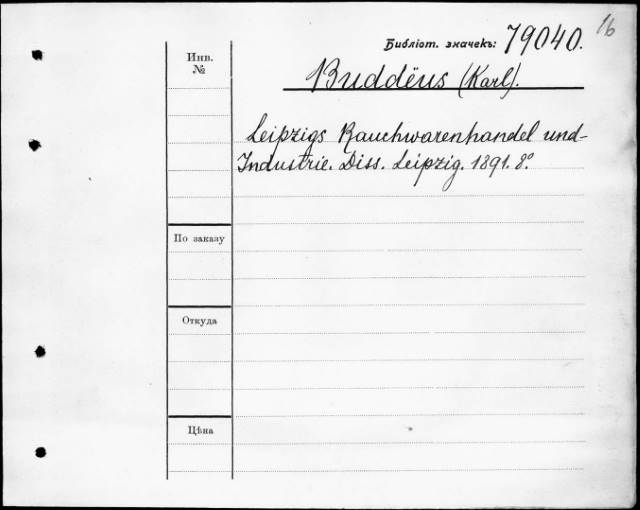 16
Библіот. значекъ: 79040.
Инв.
№
Buddëus (Karl).
Leipzigs Rauchwarenhandel und-
Industrie. Diss. Leipzig. 1891. 8º.
По заказу
Откуда
Цѣна